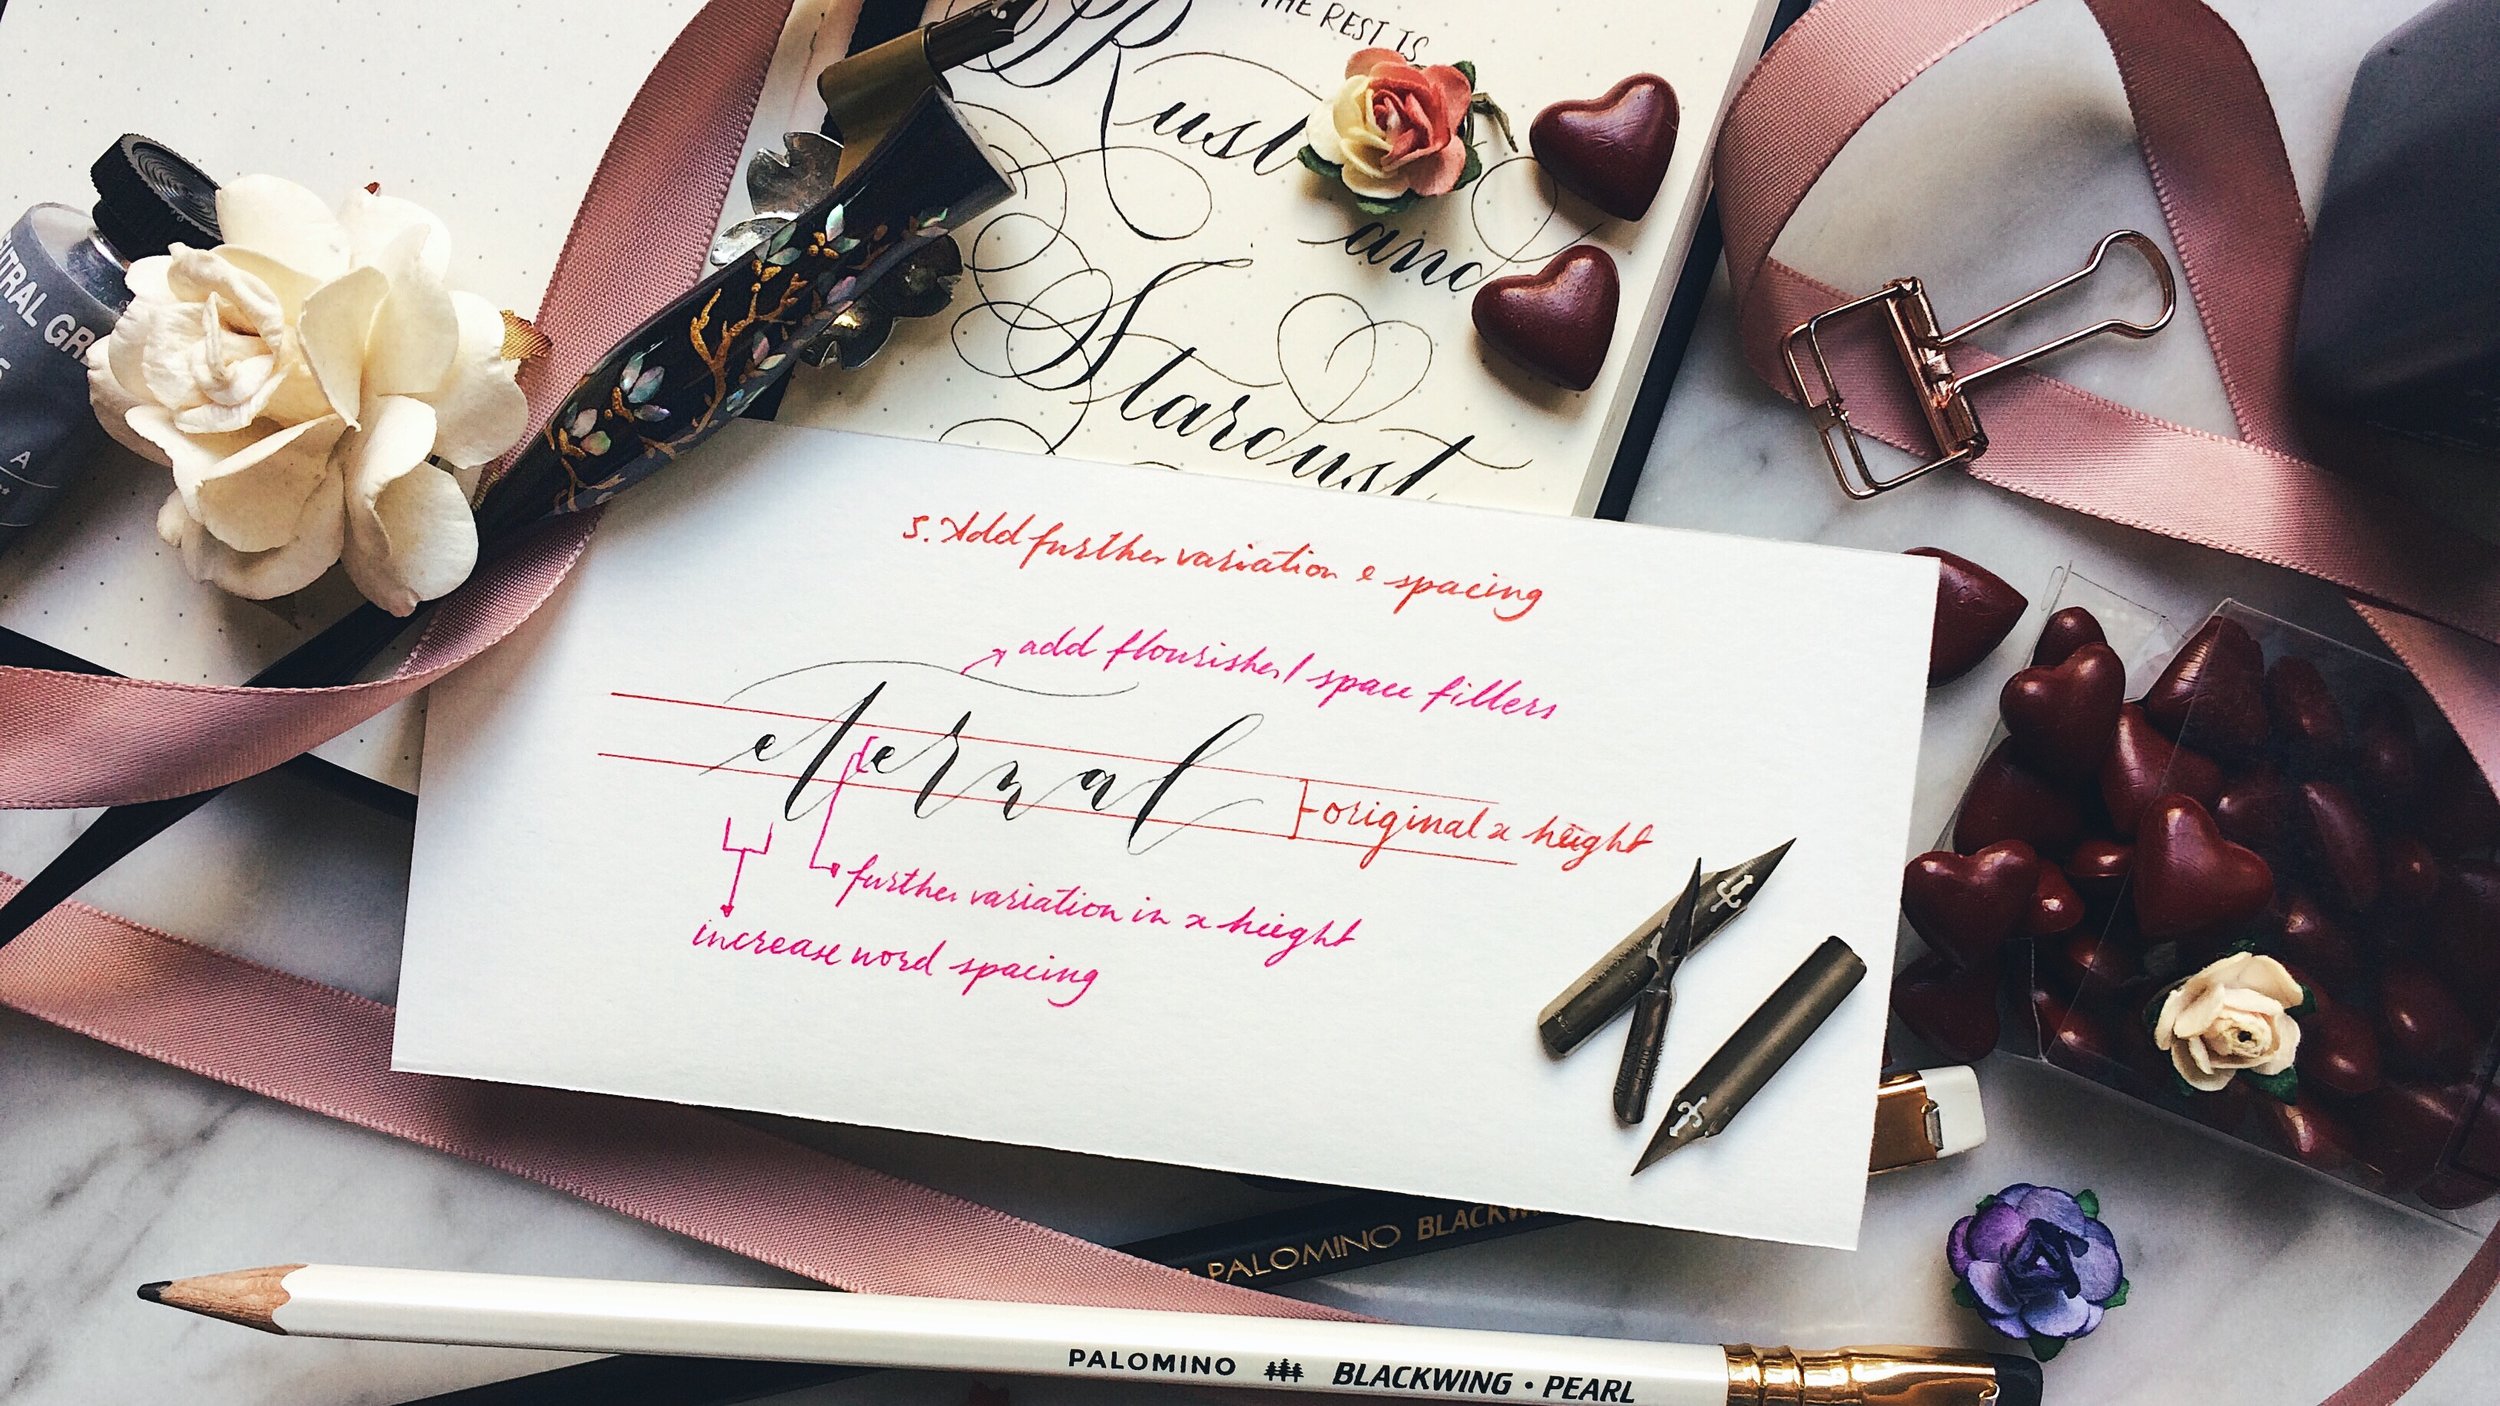 THE REST IS
Rust
and
Stardust
5. Add further variation & spacing
add flourishes/space fillers
eternal
original x height
further variation in x height
increase word spacing
PALOMINO BLACKW
PALOMINO BLACKWING • PEARL
A